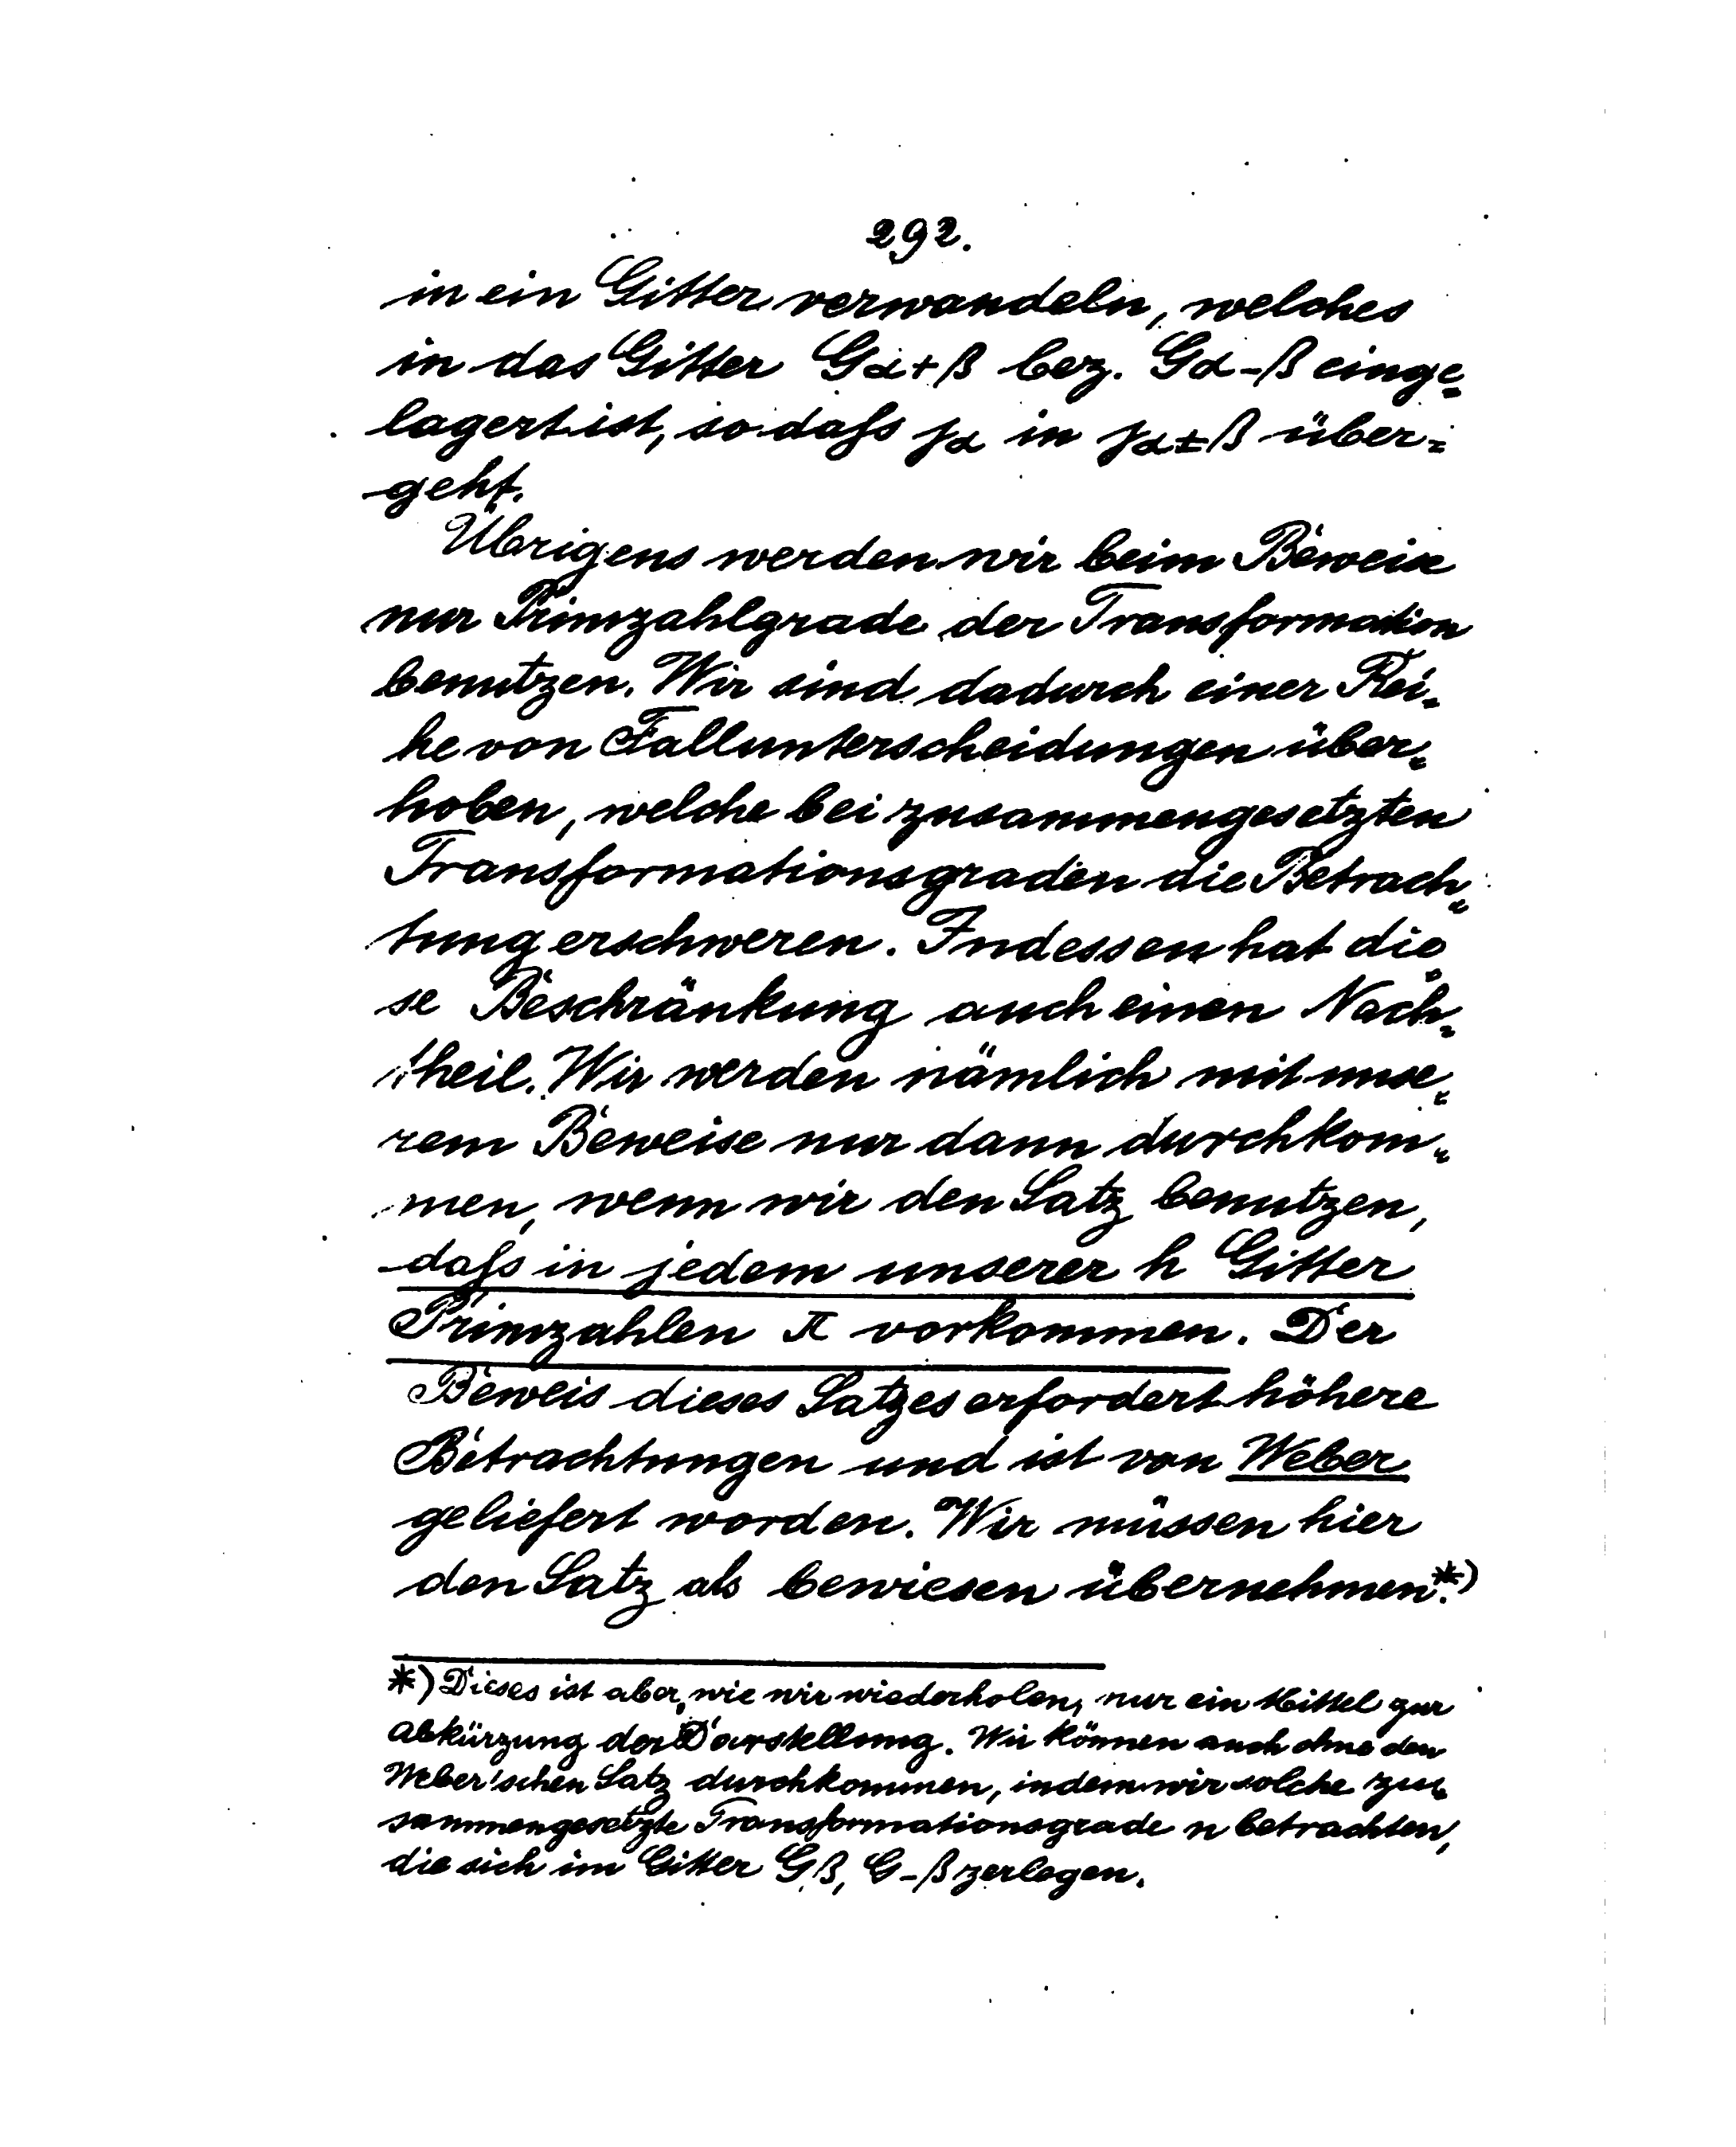 292.
in ein Gitter verwandeln, welches
in das Gitter Gα+β bez. Gα-β einge=
lagert ist, so daß jα in jα±β über=
geht.
Übrigens werden wir beim Beweise
nur Primzahlgrade der Transformation
benutzen. Wir sind dadurch einer Rei=
he von Fallunterscheidungen über=
hoben, welche bei zusammengesetzten
Transformationsgraden die Betrach=
tung erschweren. Indessen hat die=
se Beschränkung auch einen Nach=
theil. Wir werden nämlich mit unse=
rem Beweise nur dann durchkom=
men, wenn wir den Satz benutzen,
daß in jedem unserer h Gitter
Primzahlen π vorkommen. Der
Beweis dieses Satzes erfordert höhere
Betrachtungen und ist von Weber
geliefert worden. Wir müssen hier
den Satz als bewiesen übernehmen.*)
*) Dieses ist aber, wie wir wiederholen, nur ein Mittel zur
Abkürzung der Darstellung. Wir können auch ohne den
Weber'schen Satz durchkommen, indem wir solche zu=
sammengesetzte Transformationsgrade n betrachten,
die sich im Gitter Gβ, G-β zerlegen.